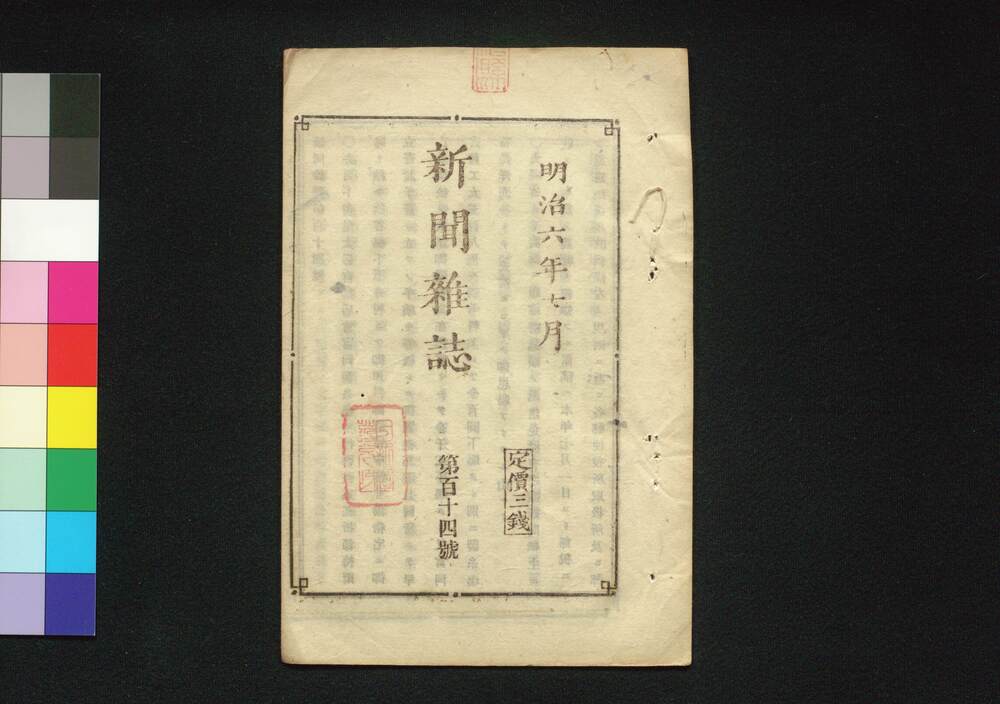 明治六年七月
定價三錢
新聞雜誌
第百十四號